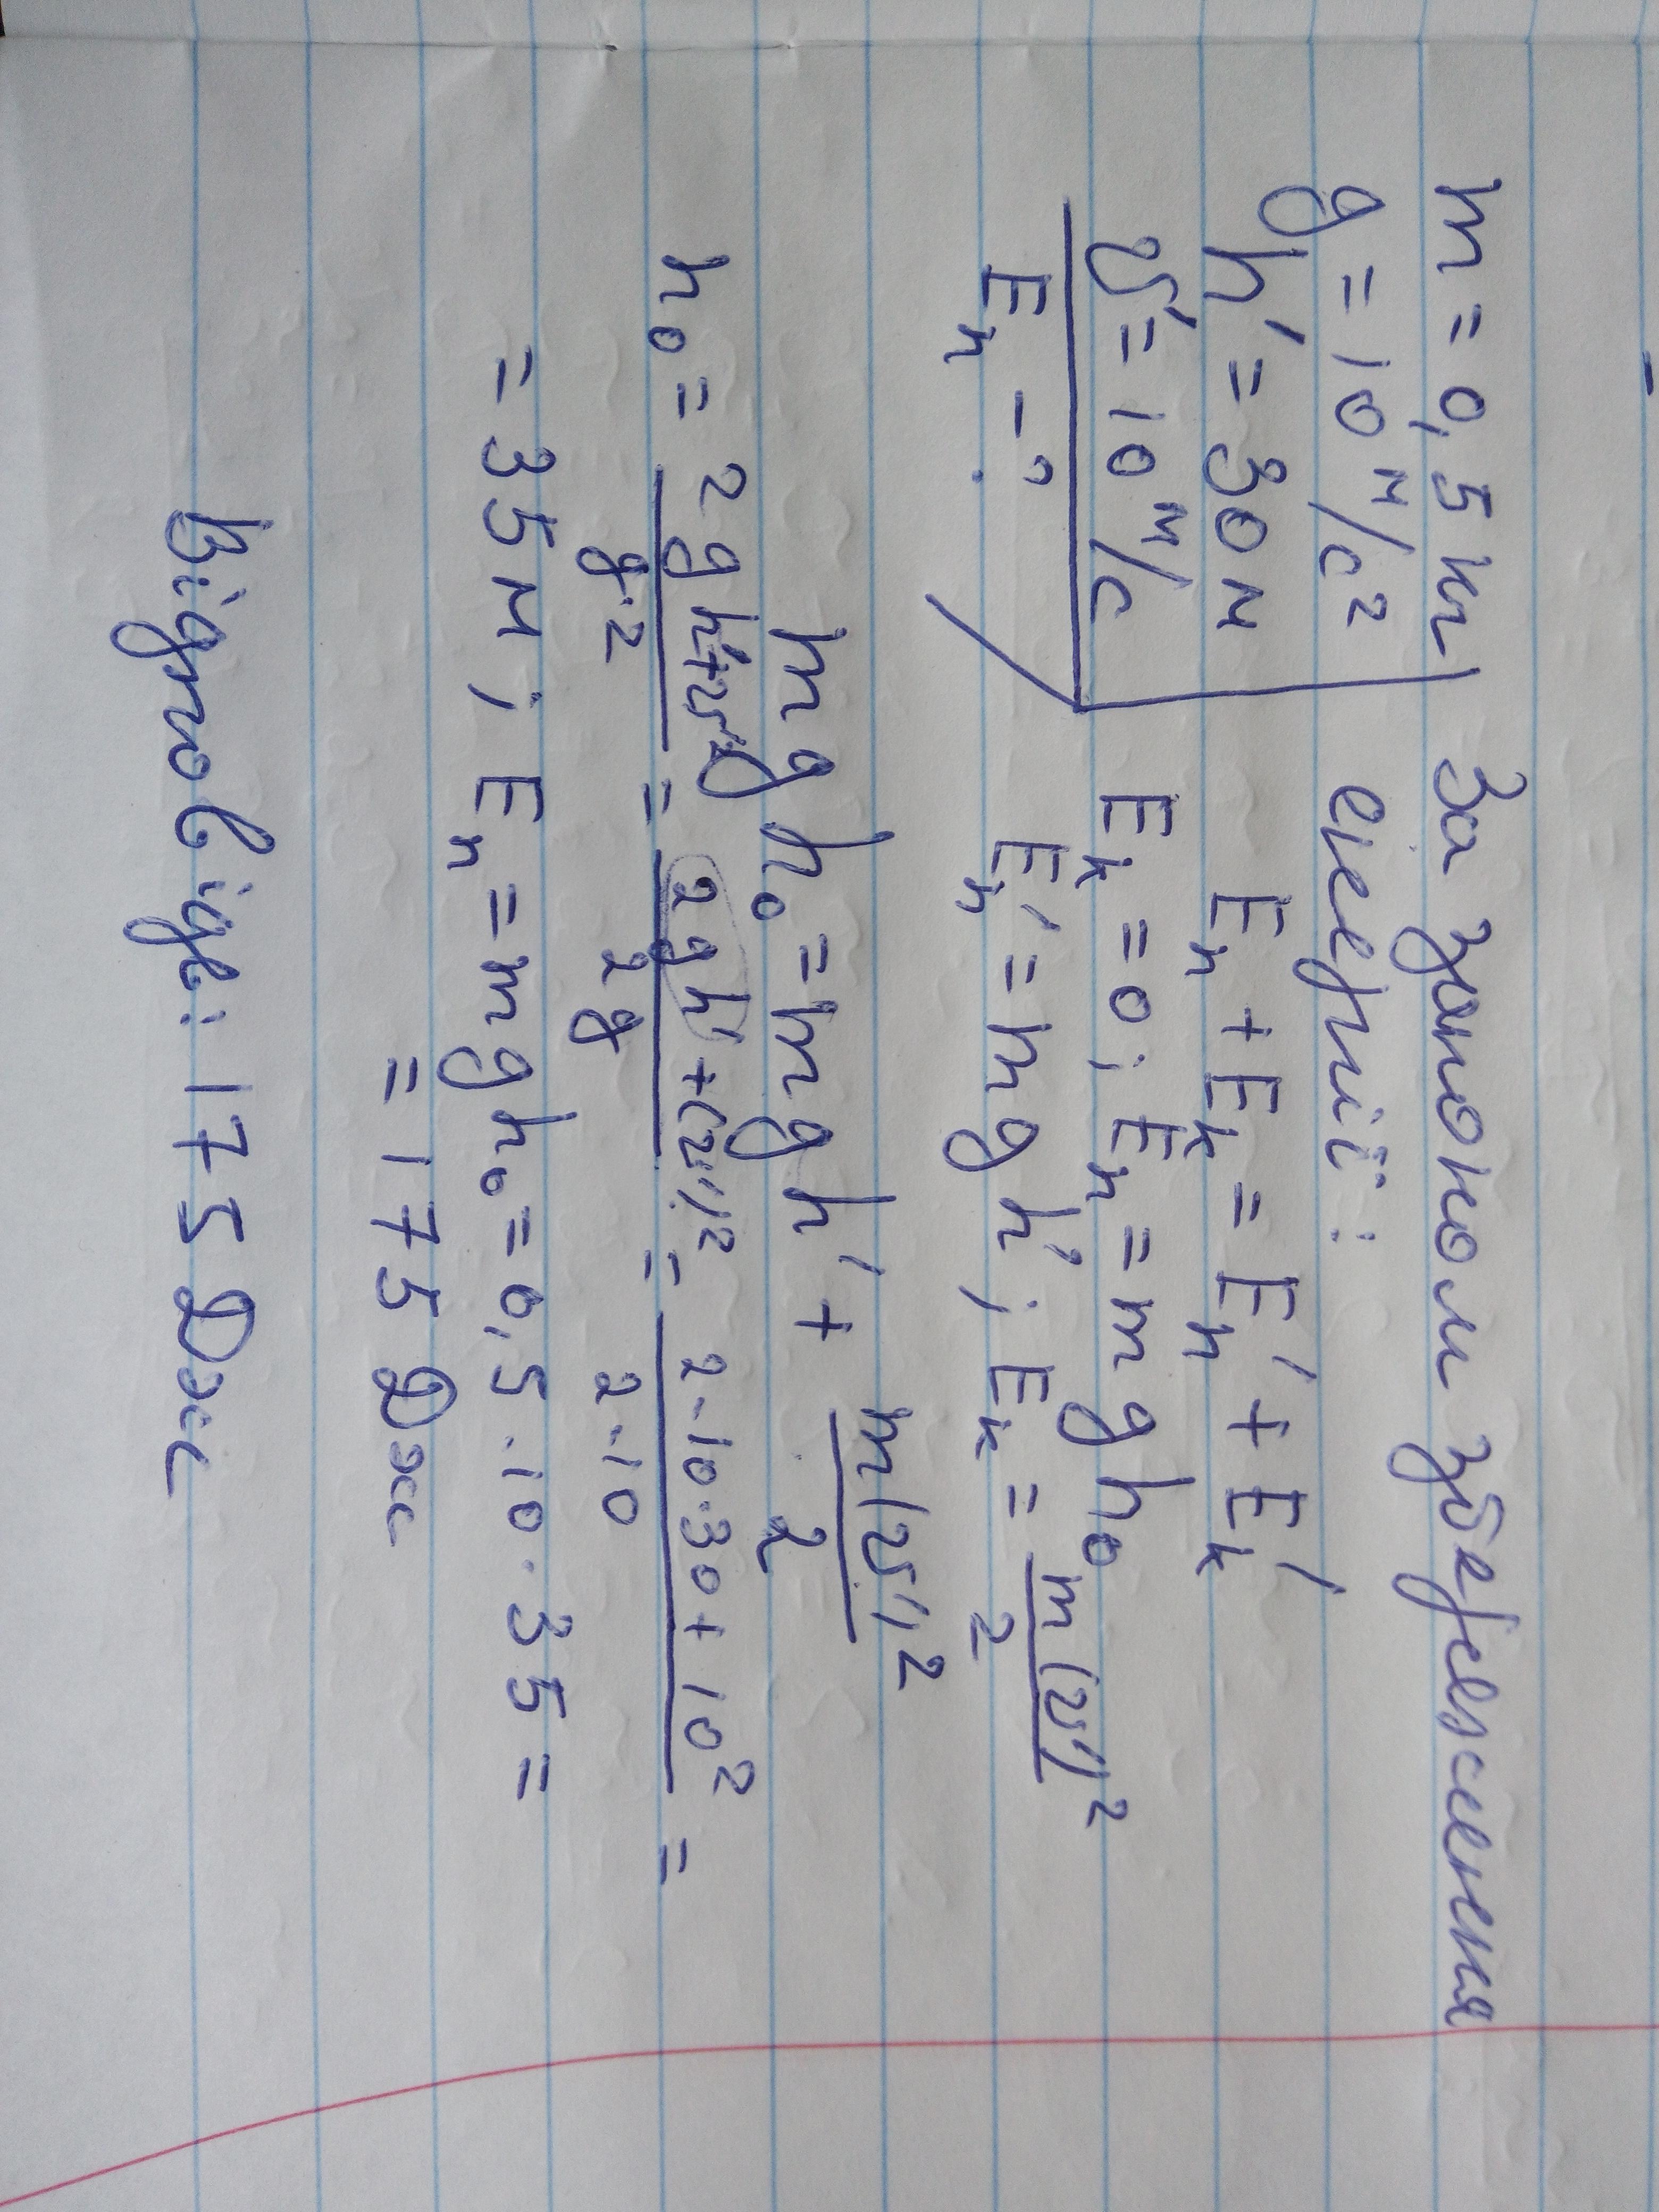 m = 0,5 кг
g = 10 м/с²
h' = 30 м
v' = 10 м/с
Eп - ?
За законом збереження
енергії:
Eп + Eк = Eп' + Eк'
Eк = 0; Eп = mgh₀
Eп' = mgh'; Eк = m(v')²/2
mgh₀ = mgh' + m(v')²/2
h₀ = = 2gh' + (v')²/2g = 2·10·30 + 10²/2·10 =
= 35 м; Eп = mgh₀ = 0,5·10·35 =
= 175 Дж
Відповідь: 175 Дж